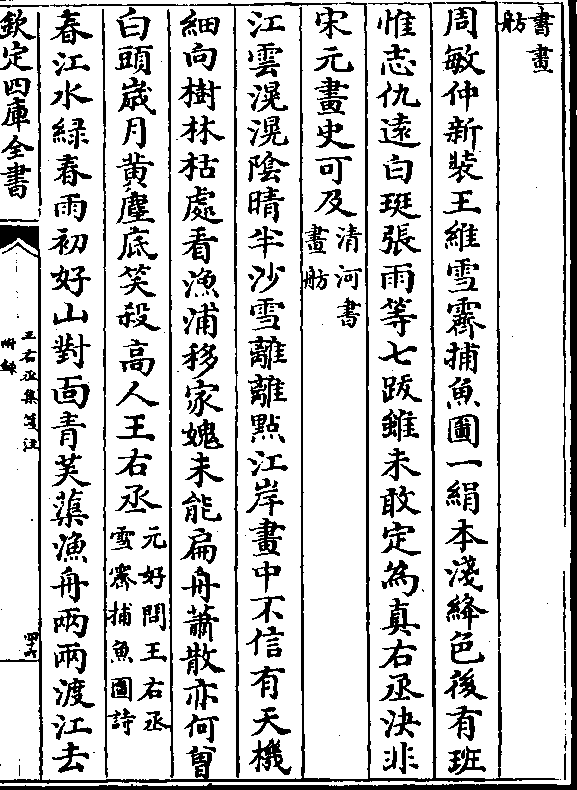 書畫
舫
周敏仲新裝王維雪霽捕魚圖一絹本淺絳色後有班
惟志仇遠白珽張雨等七跋雖未敢定為真右丞決非
宋元畫史可及清河書
畫舫
江雲滉滉陰晴半沙雪離離點江岸畫中不信有天機
細向樹林枯處看漁浦移家媿未能扁舟蕭散亦何曽
白頭嵗月黃塵底笑殺高人王右丞元好問王右丞
雪霽捕魚圖詩
春江水緑春雨初好山對面青芙蕖漁舟兩兩渡江去
欽定四庫全書
王右丞集箋注
附録